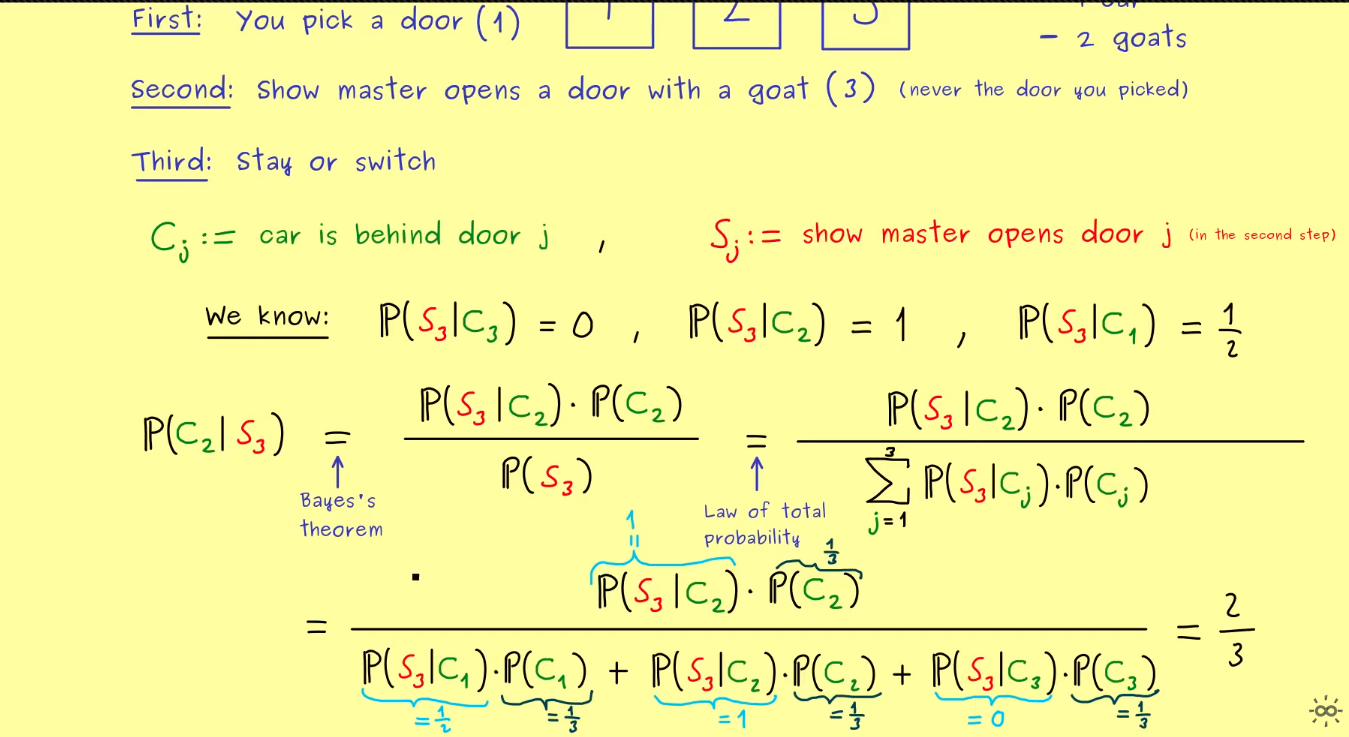 First: You pick a door (1)
1 2 3
- 2 goats
Second: Show master opens a door with a goat (3) (never the door you picked)
Third: Stay or switch
C_j := car is behind door j , S_j := show master opens door j (in the second step)
We know: ℙ(S₃|C₃) = 0 , ℙ(S₃|C₂) = 1 , ℙ(S₃|C₁) = 1/2
ℙ(C₂|S₃) = ℙ(S₃|C₂)·ℙ(C₂) / ℙ(S₃) = ℙ(S₃|C₂)·ℙ(C₂) / ∑_{j=1}^{3} ℙ(S₃|C_j)·ℙ(C_j)
Bayes's
theorem
Law of total
probability
1 = 1/3
= ℙ(S₃|C₂)·ℙ(C₂) / ℙ(S₃|C₁)·ℙ(C₁) + ℙ(S₃|C₂)·ℙ(C₂) + ℙ(S₃|C₃)·ℙ(C₃) = 2/3
= 1/2 = 1/3 = 1 = 1/3 = 0 = 1/3